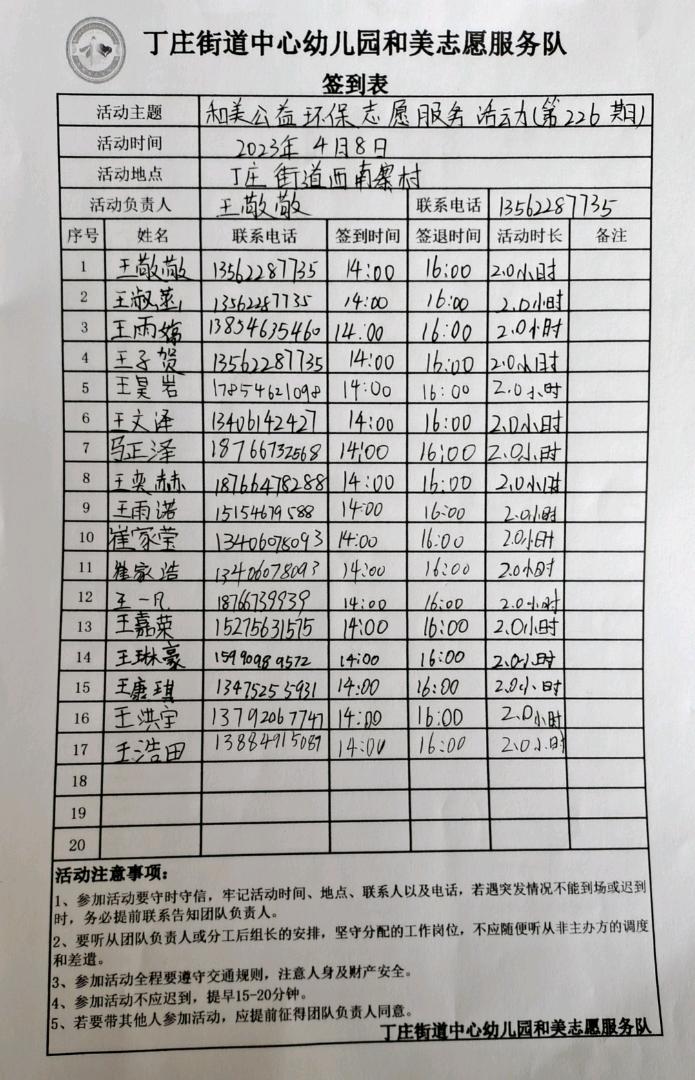 丁庄街道中心幼儿园和美志愿服务队
签到表
活动主题 和美公益环保志愿服务活动(第226期)
活动时间 2023年4月8日
活动地点 丁庄街道西南寨村
活动负责人 王敬敬 联系电话 13562287735
序号 姓名 联系电话 签到时间 签退时间 活动时长 备注
1 王敬敬 13562287735 14:00 16:00 2.0小时
2 王淑 13562287735 14:00 16:00 2.0小时
3 王雨 13854635460 14:00 16:00 2.0小时
4 王子贺 13562287735 14:00 16:00 2.0小时
5 王昊岩 17854621098 14:00 16:00 2.0小时
6 王文泽 13406142427 14:00 16:00 2.0小时
7 马正泽 18766732568 14:00 16:00 2.0小时
8 王奕赫 18766478288 14:00 16:00 2.0小时
9 王雨诺 15154679588 14:00 16:00 2.0小时
10 崔家莹 13406078093 14:00 16:00 2.0小时
11 崔家浩 13406078093 14:00 16:00 2.0小时
12 王一凡 18766739939 14:00 16:00 2.0小时
13 王嘉荣 15275631575 14:00 16:00 2.0小时
14 王琳豪 15990989572 14:00 16:00 2.0小时
15 王康琪 13475255931 14:00 16:00 2.0小时
16 王洪宇 13792067747 14:00 16:00 2.0小时
17 王浩田 13884915087 14:00 16:00 2.0小时
18
19
20
活动注意事项：
1、参加活动要守时守信，牢记活动时间、地点、联系人以及电话，若遇突发情况不能到场或迟到
时，务必提前联系告知团队负责人。
2、要听从团队负责人或分工后组长的安排，坚守分配的工作岗位，不应随便听从非主办方的调度
和差遣。
3、参加活动全程要遵守交通规则，注意人身及财产安全。
4、参加活动不应迟到，提早15-20分钟。
5、若要带其他人参加活动，应提前征得团队负责人同意。
丁庄街道中心幼儿园和美志愿服务队